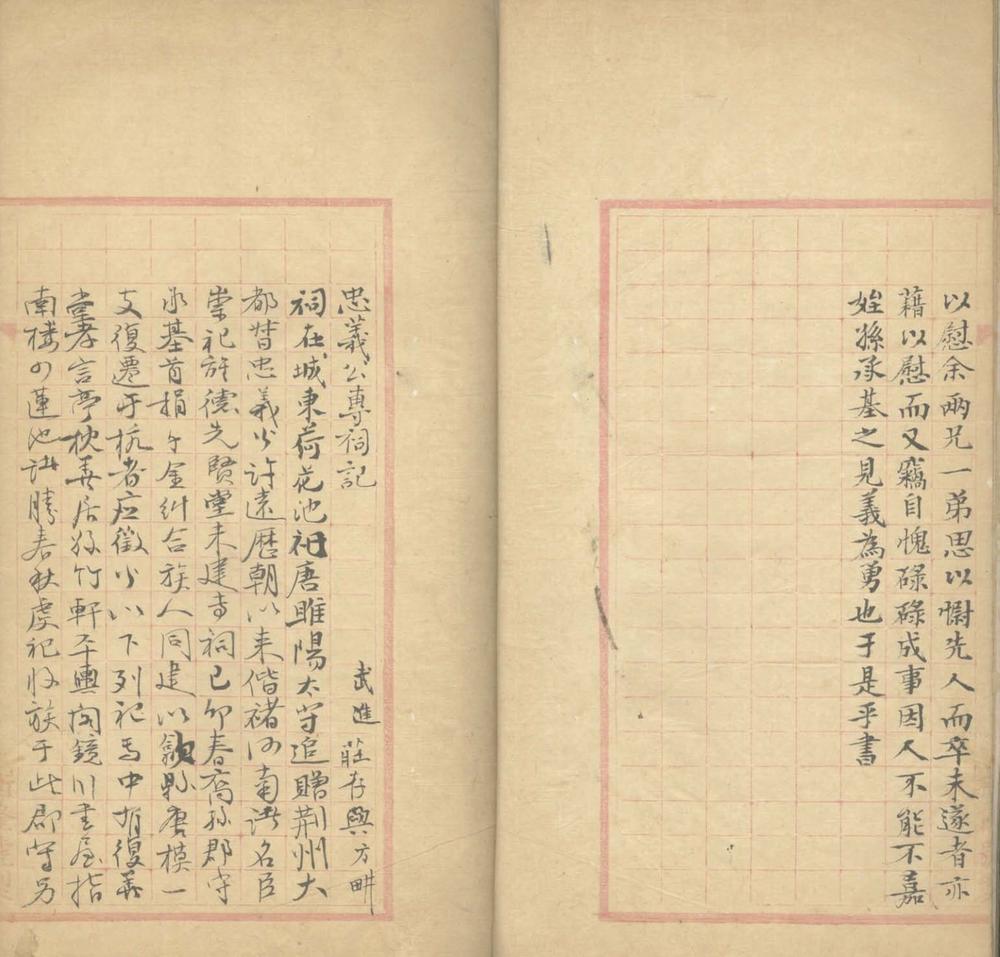 以慰余兩兄一弟思以慰先人而卒未遂者亦
藉以慰而又竊自愧碌碌成事因人不能不嘉
姪孫承基之見義為勇也于是乎書
忠義公專祠記
武進莊存與方畊
祠在城東荷花池祀唐睢陽太守追贈荊州大
都督忠義公許遠歷朝以來偕褚河南諸名臣
崇祀旌德先賢堂未建專祠己卯春裔孫郡守
承基首捐千金糾合族人同建以歙縣唐模一
支復遷于杭者应徵公以下列祀焉中有復義
堂孝言亭枕善居竹軒平輿閣鏡川書屋指
南樓の蓮池諸勝春秋虔祀收族于此郡守另